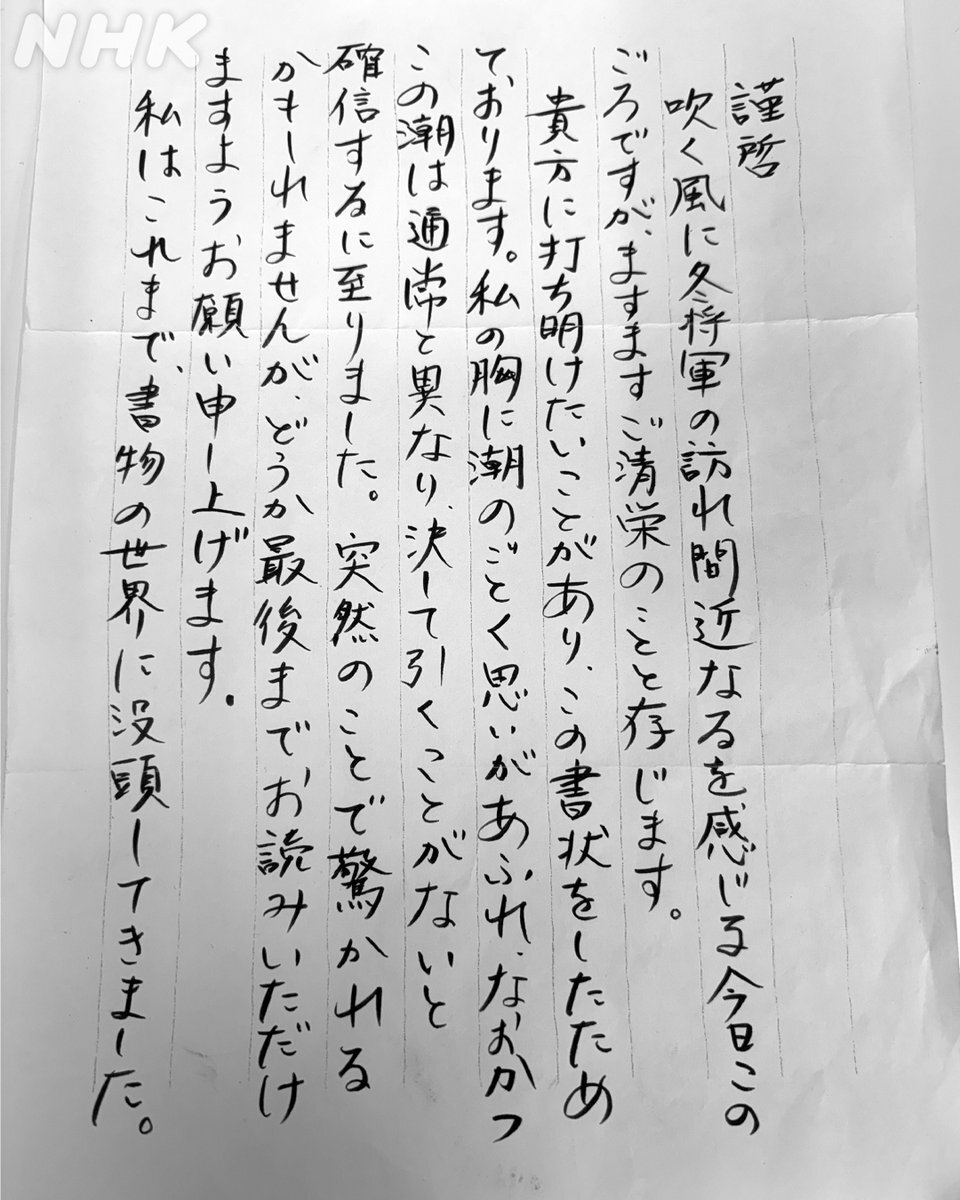 NHK
謹啓
吹く風に冬将軍の訪れ間近なるを感じる今日この
ごろですが、ますますご清栄のことと存じます。
貴方に打ち明けたいことがあり、この書状をしたため
ております。私の胸に潮のごとく思いがあふれ、なおかつ
この潮は通常と異なり、決して引くことがないと
確信するに至りました。突然のことで驚かれる
かもしれませんが、どうか最後までお読みいただけ
ますようお願い申し上げます。
私はこれまで、書物の世界に没頭してきました。